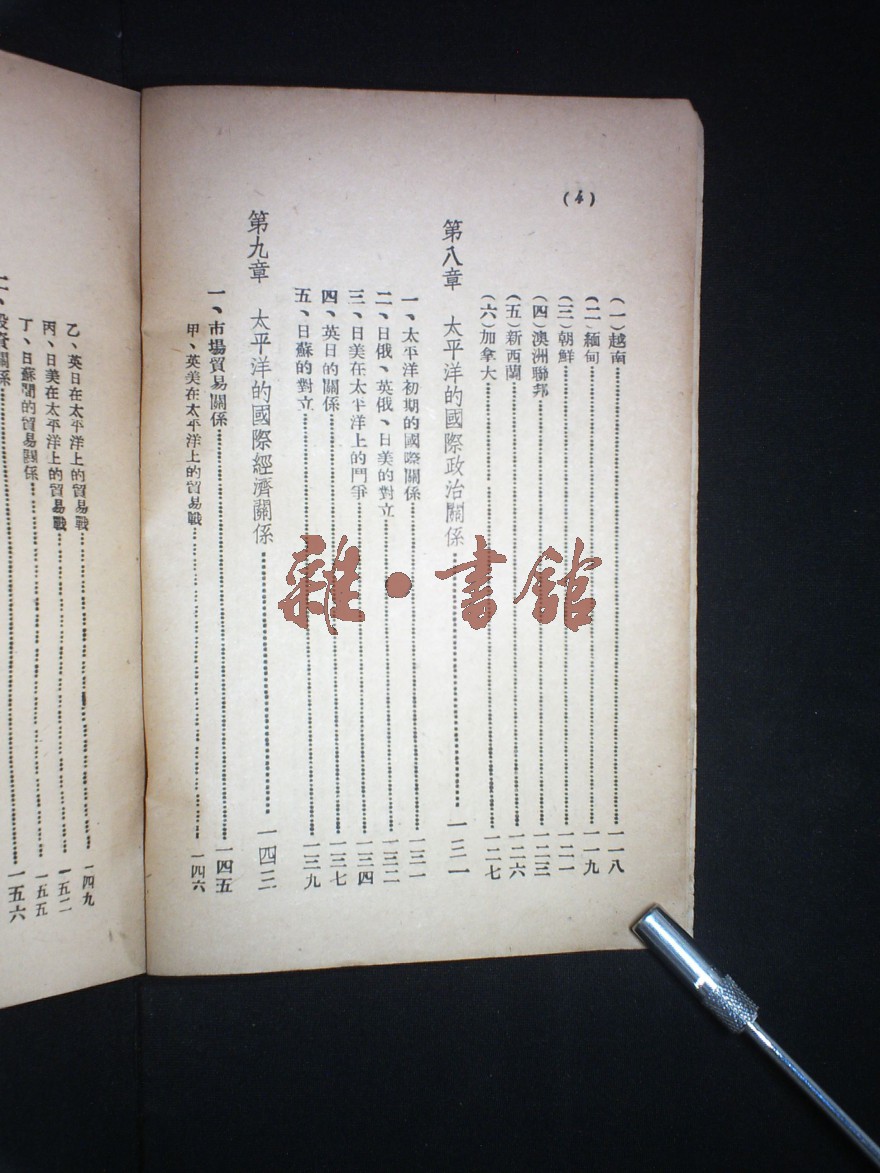 (4)
(一)越南……一一八
(二)緬甸……一一九
(三)朝鮮……一二一
(四)澳洲聯邦……一二三
(五)新西蘭……一二六
(六)加拿大……一二七
第八章 太平洋的國際政治關係……一三一
一、太平洋初期的國際關係……一三一
二、日俄、英俄、日美的對立……一三二
三、日美在太平洋上的鬥爭……一三四
四、英日的關係……一三七
五、日蘇的對立……一三九
第九章 太平洋的國際經濟關係……一四三
一、市場貿易關係……一四五
甲、英美在太平洋上的貿易戰……一四六
乙、英日在太平洋上的貿易戰……一四九
丙、日美在太平洋上的貿易戰……一五二
丁、日蘇間的貿易關係……一五五
二、投資關係……一五六
雜·書館